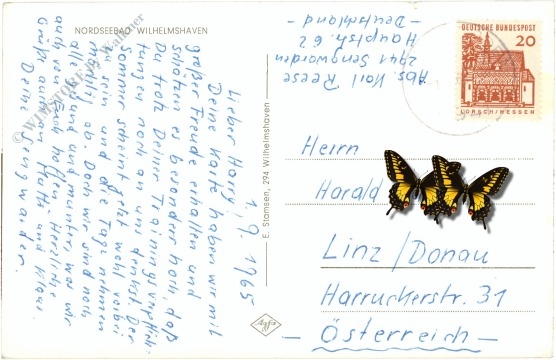 NORDSEEBAD WILHELMSHAVEN
Lieber Harry! 1.9.1965
Deine Karte haben wir mit
großer Freude erhalten und
schätzen es besonders hoch, daß
Du trotz Deiner Trainingsverpflich-
tungen noch an uns denkst. Der
Sommer scheint jetzt wohl vorbei
zu sein und die Tage nehmen
mächtig ab. Doch wir sind noch
alle gesund und munter, was wir
auch von Euch hoffen. Herzliche
Grüße auch an Mutti und Klaus
Deine
E. Stamsen, 294 Wilhelmshaven
Agfa
Abs. Karl Reese
2941 Sengwarden
Hauptstr. 62
- Deutschland -
DEUTSCHE BUNDESPOST
20
LORSCH/HESSEN
Herrn
Harald
Linz/Donau
Harruckerstr. 31
- Österreich -